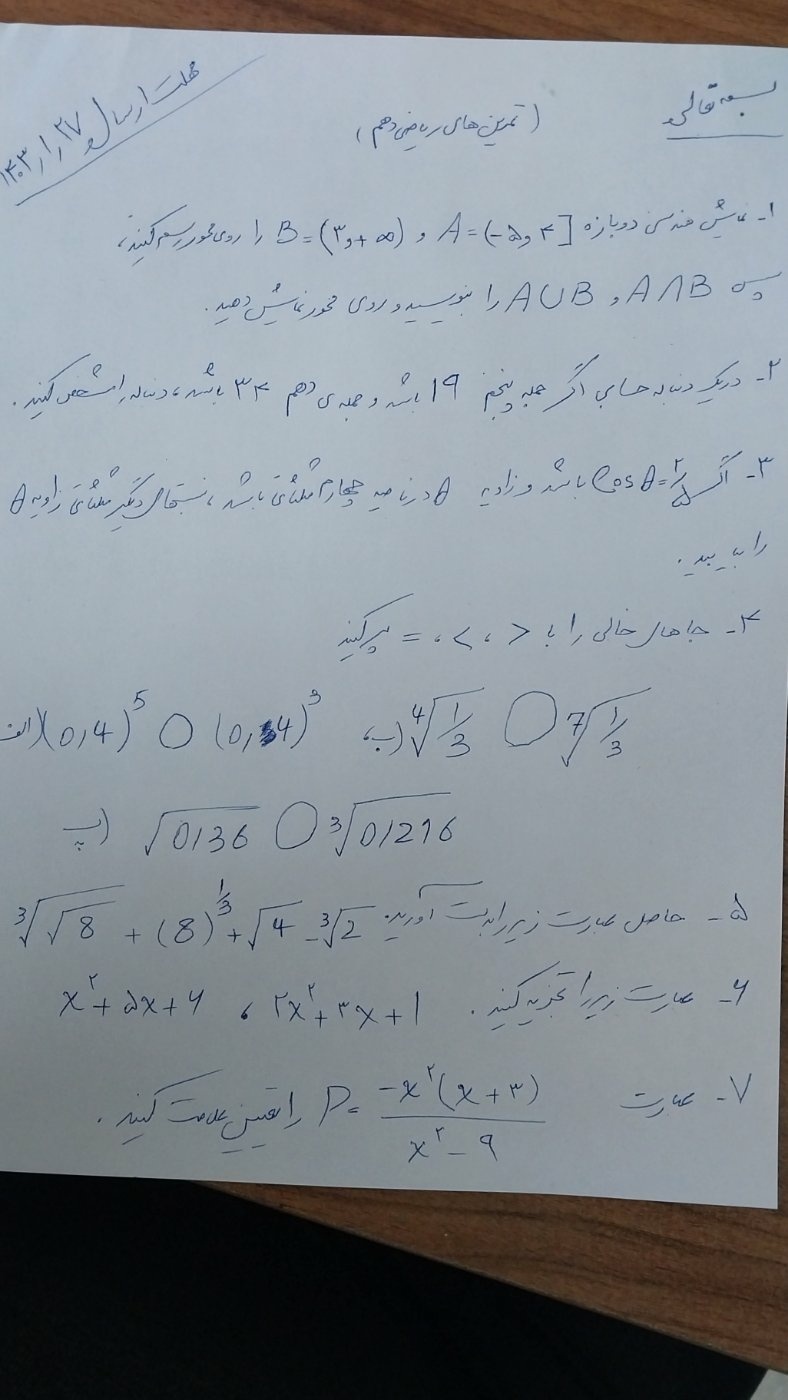 بسمه تعالی
(تمرین های ریاضی دهم)
مهلت ارسال ۱۴۰۳/۱/۲۷
۱- نمایش هندسی دو بازه A = (-۵ و ۴] و B = (۳ و +∞) را روی محور رسم کنید،
سپس A∩B و A∪B را بنویسید و روی محور نمایش دهید.
۲- در یک دنباله حسابی اگر جمله پنجم 19 باشد و جمله ی دهم ۳۴ باشد، دنباله را مشخص کنید.
۳- اگر Cos θ = ۲/۵ باشد و زاویه θ در ناحیه چهارم مثلثاتی باشد، نسبتهای دیگر مثلثاتی زاویه θ
را بیابید.
۴- جاهای خالی را با > ، < ، = پر کنید
الف) (0,4)^5 ○ (0,4)^3 ب) ⁴√(1/3) ○ ⁷√(1/3)
پ) √0,36 ○ ³√0,216
۵- حاصل عبارت زیر را بدست آورید. ³√√8 + (8)^(1/3) + √4 - ³√2
۶- عبارت زیر را تجزیه کنید. ۲x^۲ + ۳x + 1 ، x^۲ + ۵x + ۶
۷- عبارت P = -x^۲(x + ۳) / x^۲ - ۹ را تعیین علامت کنید.